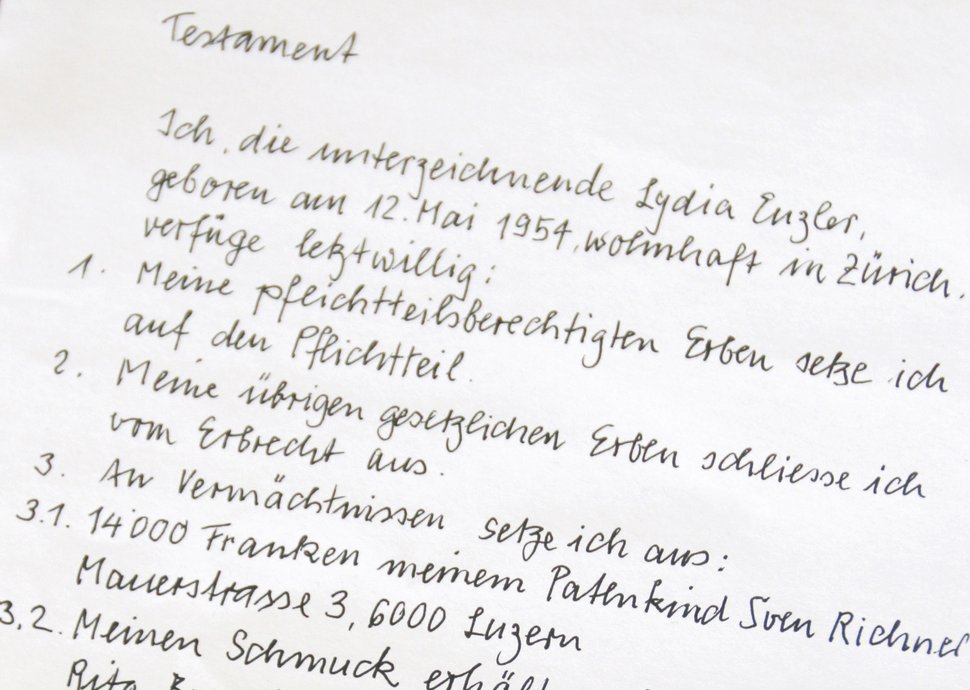 Testament
Ich, die unterzeichnende Lydia Enzler,
geboren am 12. Mai 1954, wohnhaft in Zürich.
verfüge letztwillig:
1. Meine pflichtteilsberechtigten Erben setze ich
auf den Pflichtteil.
2. Meine übrigen gesetzlichen Erben schliesse ich
vom Erbrecht aus.
3. An Vermächtnissen setze ich aus:
3.1. 14'000 Franken meinem Patenkind Sven Richner
Mauerstrasse 3, 6000 Luzern
3.2. Meinen Schmuck
Rita